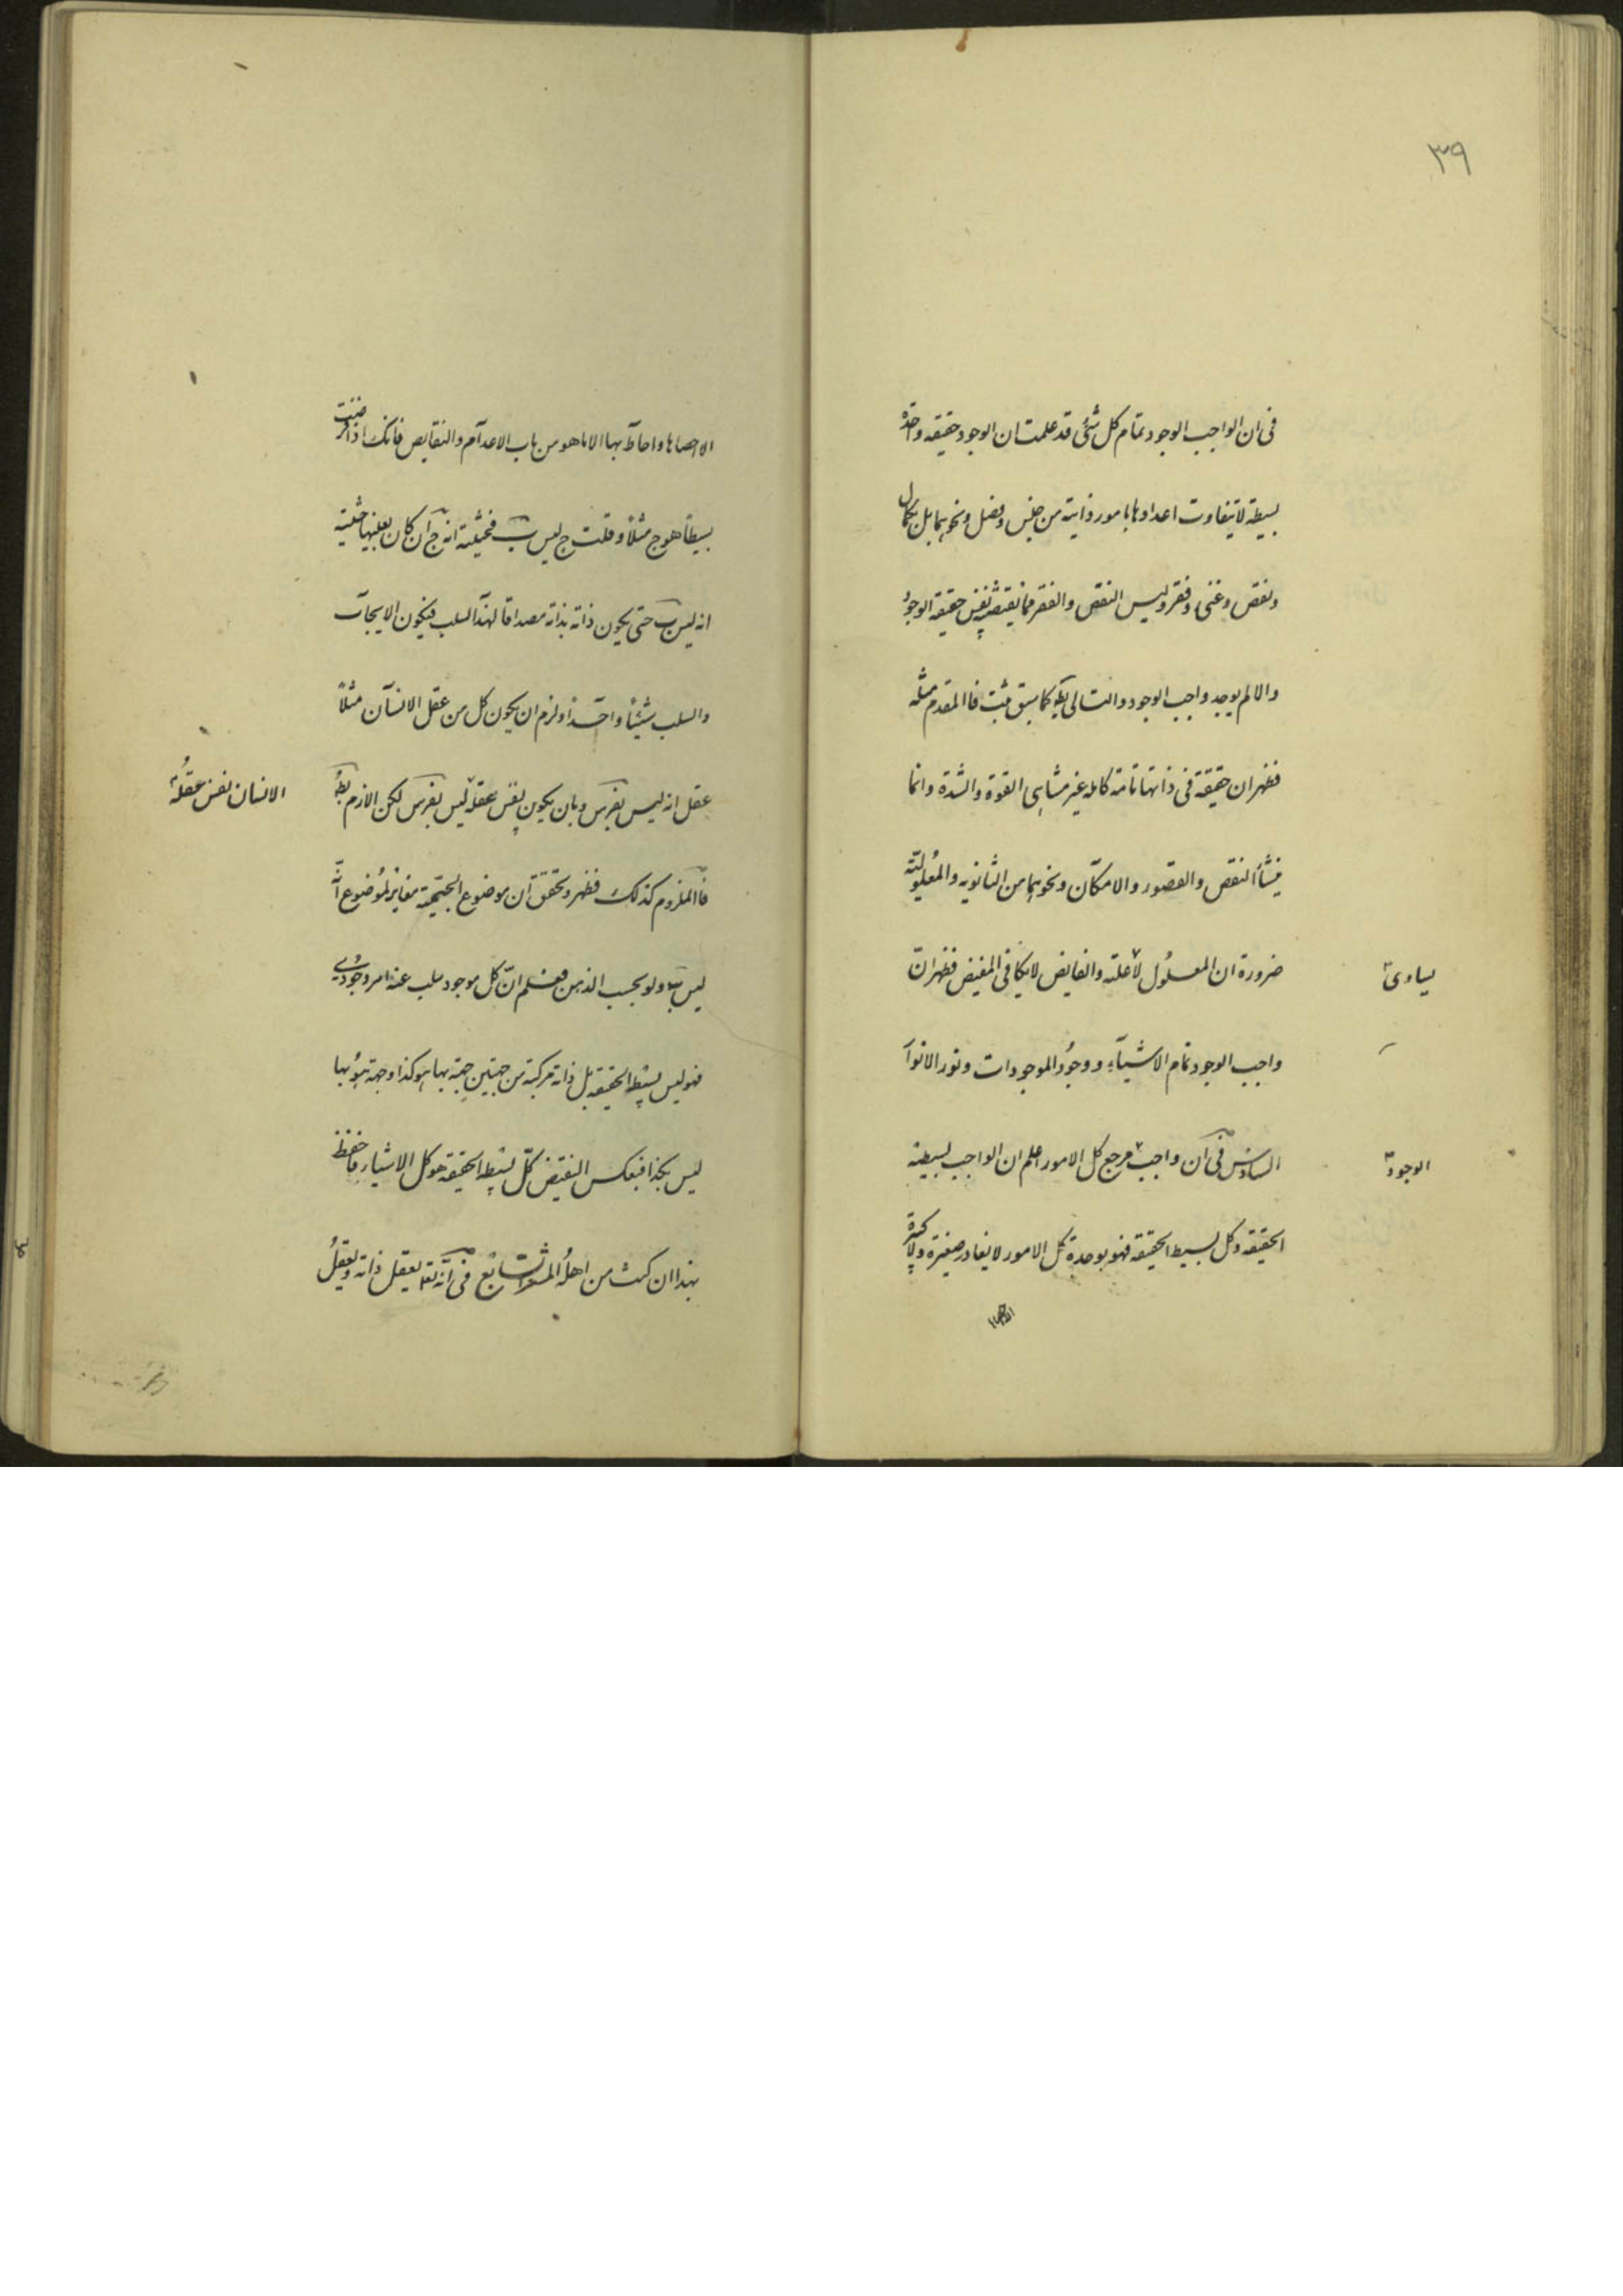 ٣٩
فى ان الواجب الوجود تمام كل شئ قد علمت ان الوجود حقيقه واحدة
بسيطة لا يتفاوت اعدادها بامور ذاتية من جنس وفصل ونحوهما بل بكمال
ونقص وغنى وفقر وليس النقص والفقر مما يقتضيه نفس حقيقه الوجود
والا لم يوجد واجب الوجود والتالى بط كما سبق مثبت فاالمقدم مثله
فظهر ان حقيقة فى ذاتها تامة كامله غير متناهى القوة والشدة وانما
ينشأ النقص والقصور والامكان ونحوهما من الثانويه والمعلوليّة
ضرورة ان المعلول لا علته والفايض لا يكافى المفيض فظهر انّ
يساوى
واجب الوجود تمام الاشيآء ووجود الموجودات ونور الانوار
السادس فى ان واجب مرجع كل الامور اعلم ان الواجب بسيطه
الوجود
الحقيقه وكل بسيط الحقيقه فهو بوحدة كل الامور لا يغادر صغيرة ولا كبيرة
الا احصاها واحاط بها الا ما هو من باب الاعدام والنقايص فانك اذا فرضت
بسيطاً هو ج مثلاً وقلت ج ليس ب فحيثية انه ج ان كان بعينها حيثية
انه ليس ب حتى يكون ذاته بذاته مصداقا لهذا السلب فيكون الايجاب
والسلب شيئاً واحداً ولزم ان يكون كل من عقل الانسان مثلاً
عقل انه ليس بفرس وبان يكون نفس عقله ليس بفرس لكن الازم بط
الانسان نفس عقله
فاالملزوم كذلك فظهر وتحقق ان موضوع الجيمّية مغاير لموضوع انّه
ليس ب ولو بحسب الذهن فعلم انّ كل موجود سلب عنه امر وجودى
فهو ليس بسيط الحقيقه بل ذاته مركبة من جهتين جهة بها هو كذا وجهة هو بها
ليس بكذا فبعكس النقيض كلّ بسيط الحقيقه هو كل الاشياء فاحفظ
بهذا ان كنت من اهله المشعر السابع فى انّه تعالى يعقل ذاته ويعقل